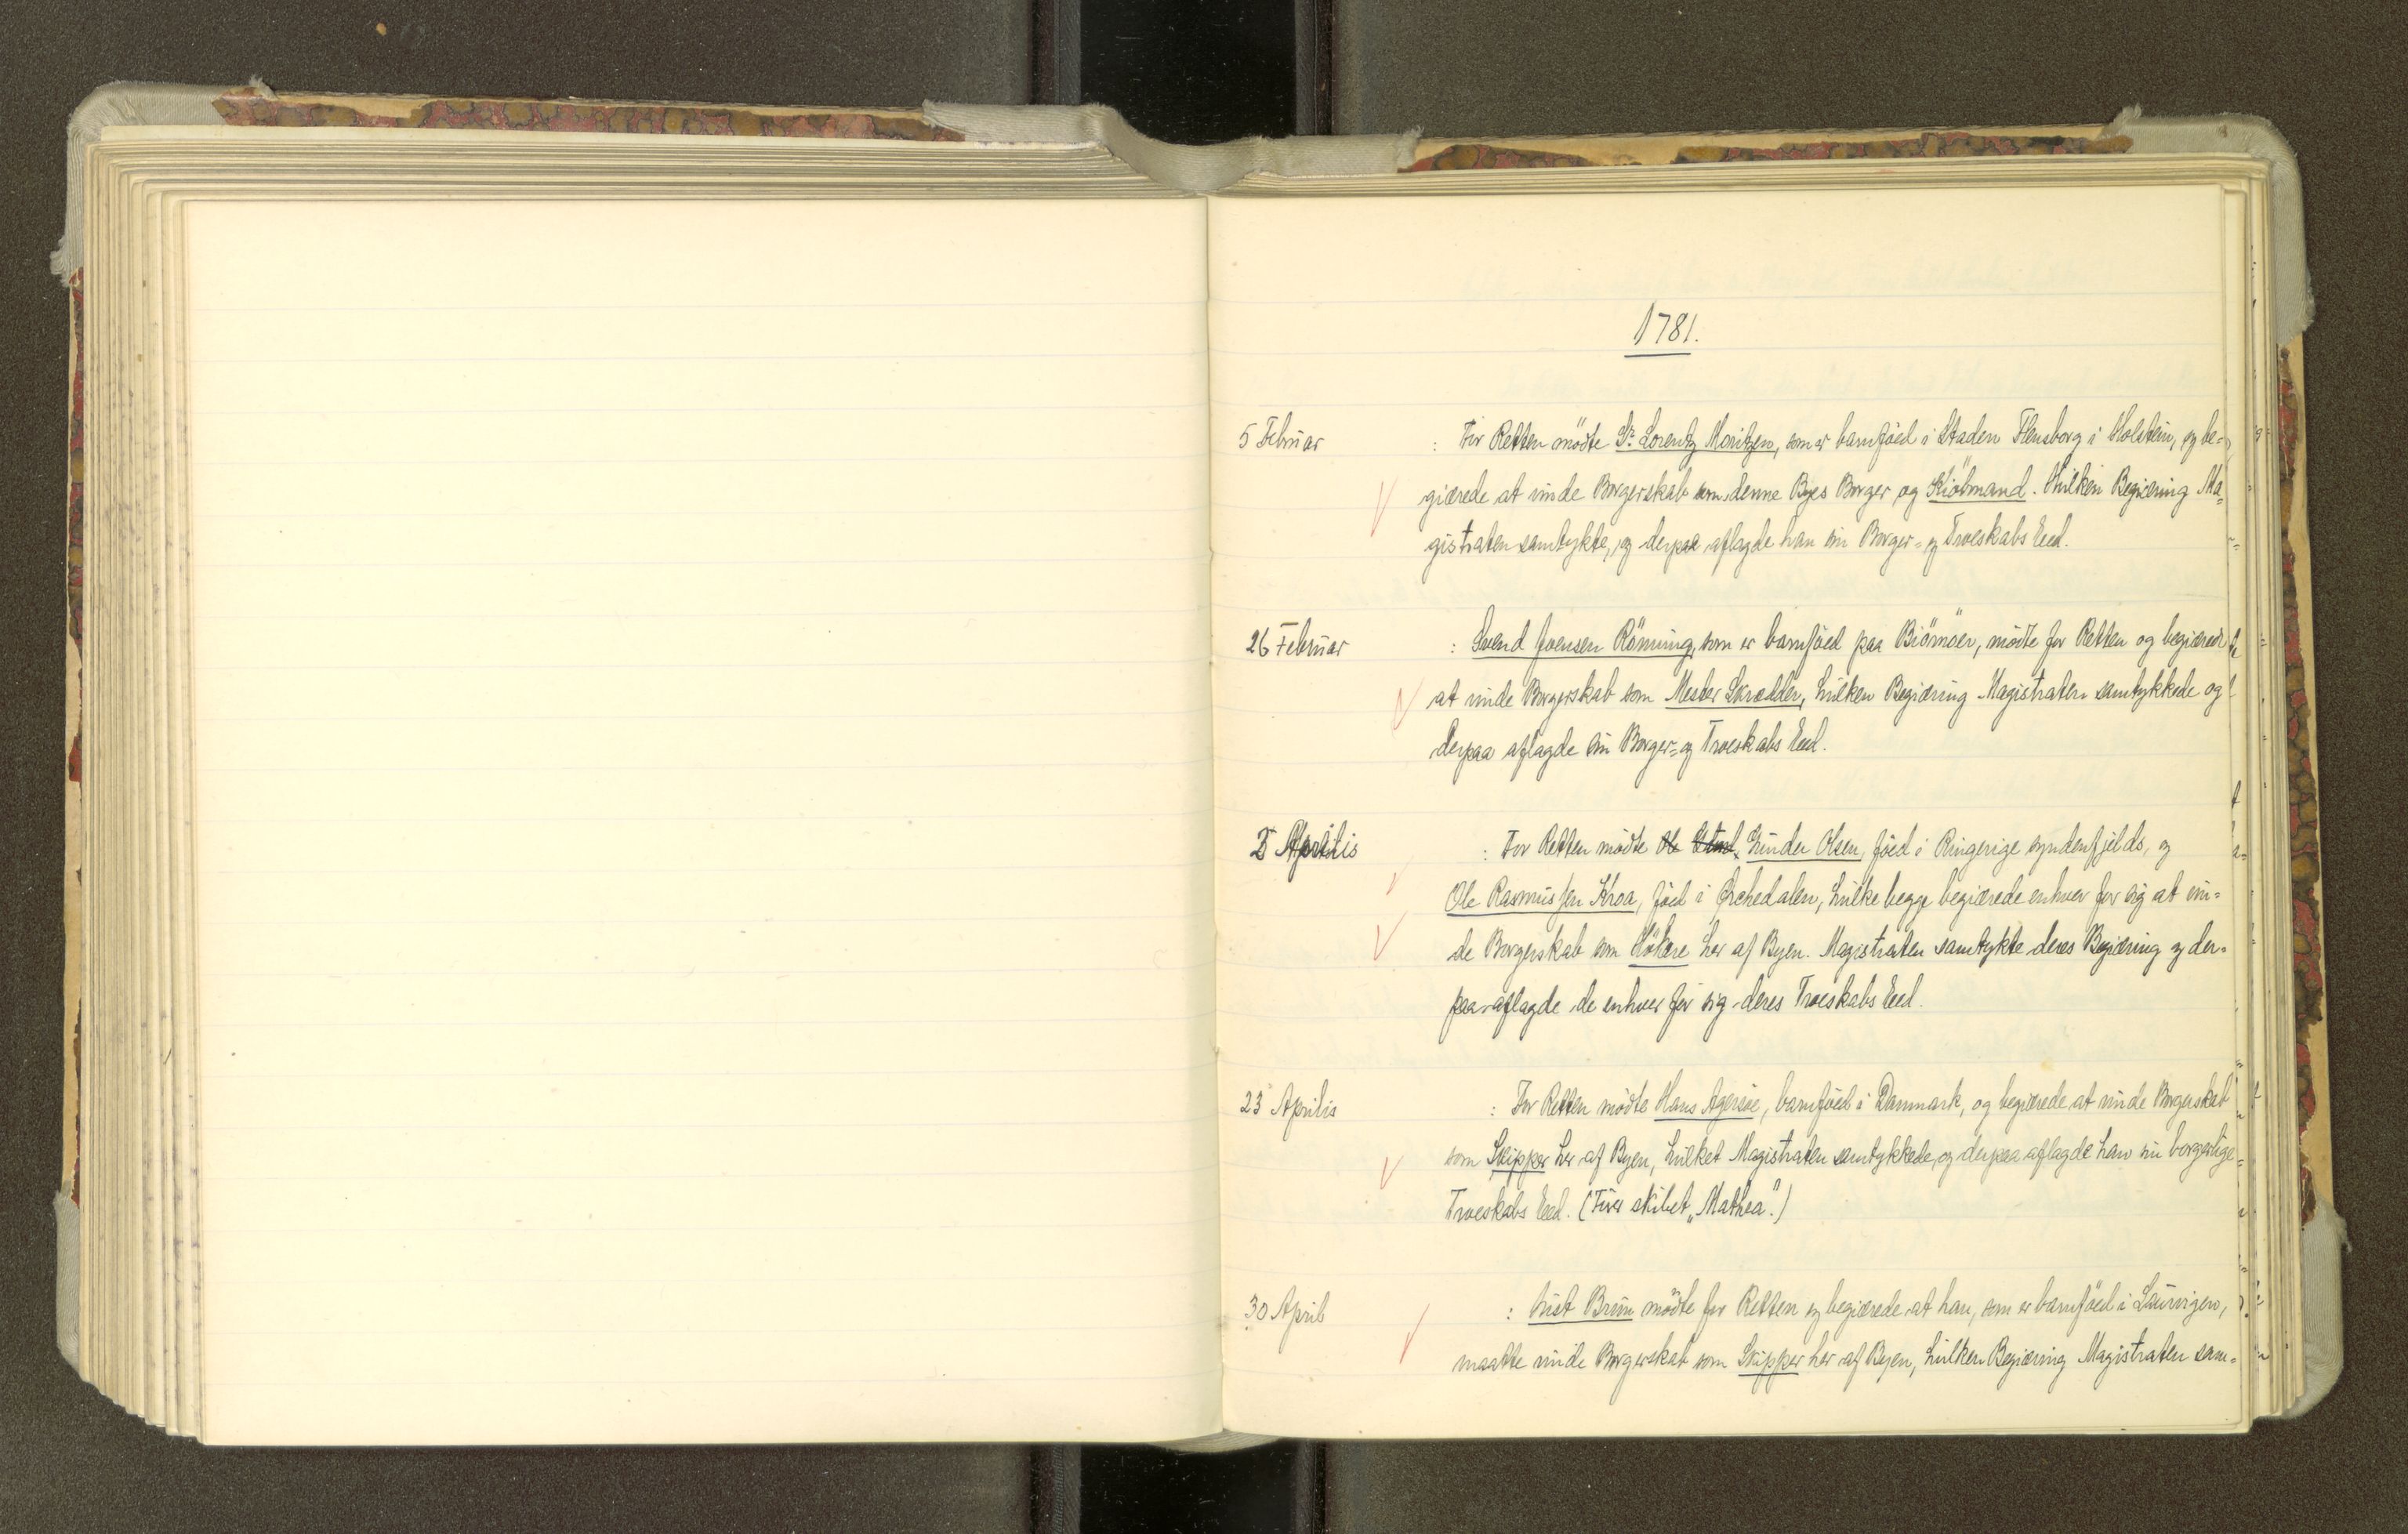 1781.
5 Februar : For Retten mödte Sr. Lorentz Moritzen, som er barnföed i Staden Flensborg i Holstein, og be-
giærede at vinde Borgerskab som denne Byes Borger og Kiöbmand. Hvilken Begiæring Ma-
gistraten samtykte, og derpaa aflagde han sin Borger- og Troeskabs Eed.
26 Februar : Svend Joensen Rönning, som er barnföed paa Biörnöer, mödte for Retten og begiærede
at vinde Borgerskab som Mester Skrædder, hvilken Begiæring Magistraten samtykkede og
derpaa aflagde sin Borger- og Troeskabs Eed.
Aprilis : For Retten mödte Ole Gunder Olsen, föed i Ringerige syndenfjelds, og
Ole Rasmussen Kroa, föed i Orchedalen, hvilke begge begiærede enhver for sig at vin-
de Borgerskab som Hökere her af Byen. Magistraten samtykte deres Begiæring og der-
paa aflagde de enhver for sig deres Troeskabs Eed.
23 Aprilis : For Retten mödte Hans Agersöe, barnföed i Danmark, og begiærede at vinde Borgerskab
som Skipper her af Byen, hvilket Magistraten samtykkede, og derpaa aflagde han sin borgerlige
Troeskabs Eed. (Förer skibet „Mathea".)
30 April : Brun mödte for Retten og begiærede at han, som er barnföed i Laurvigen,
maatte vinde Borgerskab som Skipper her af Byen, hvilken Begiæring Magistraten sam-